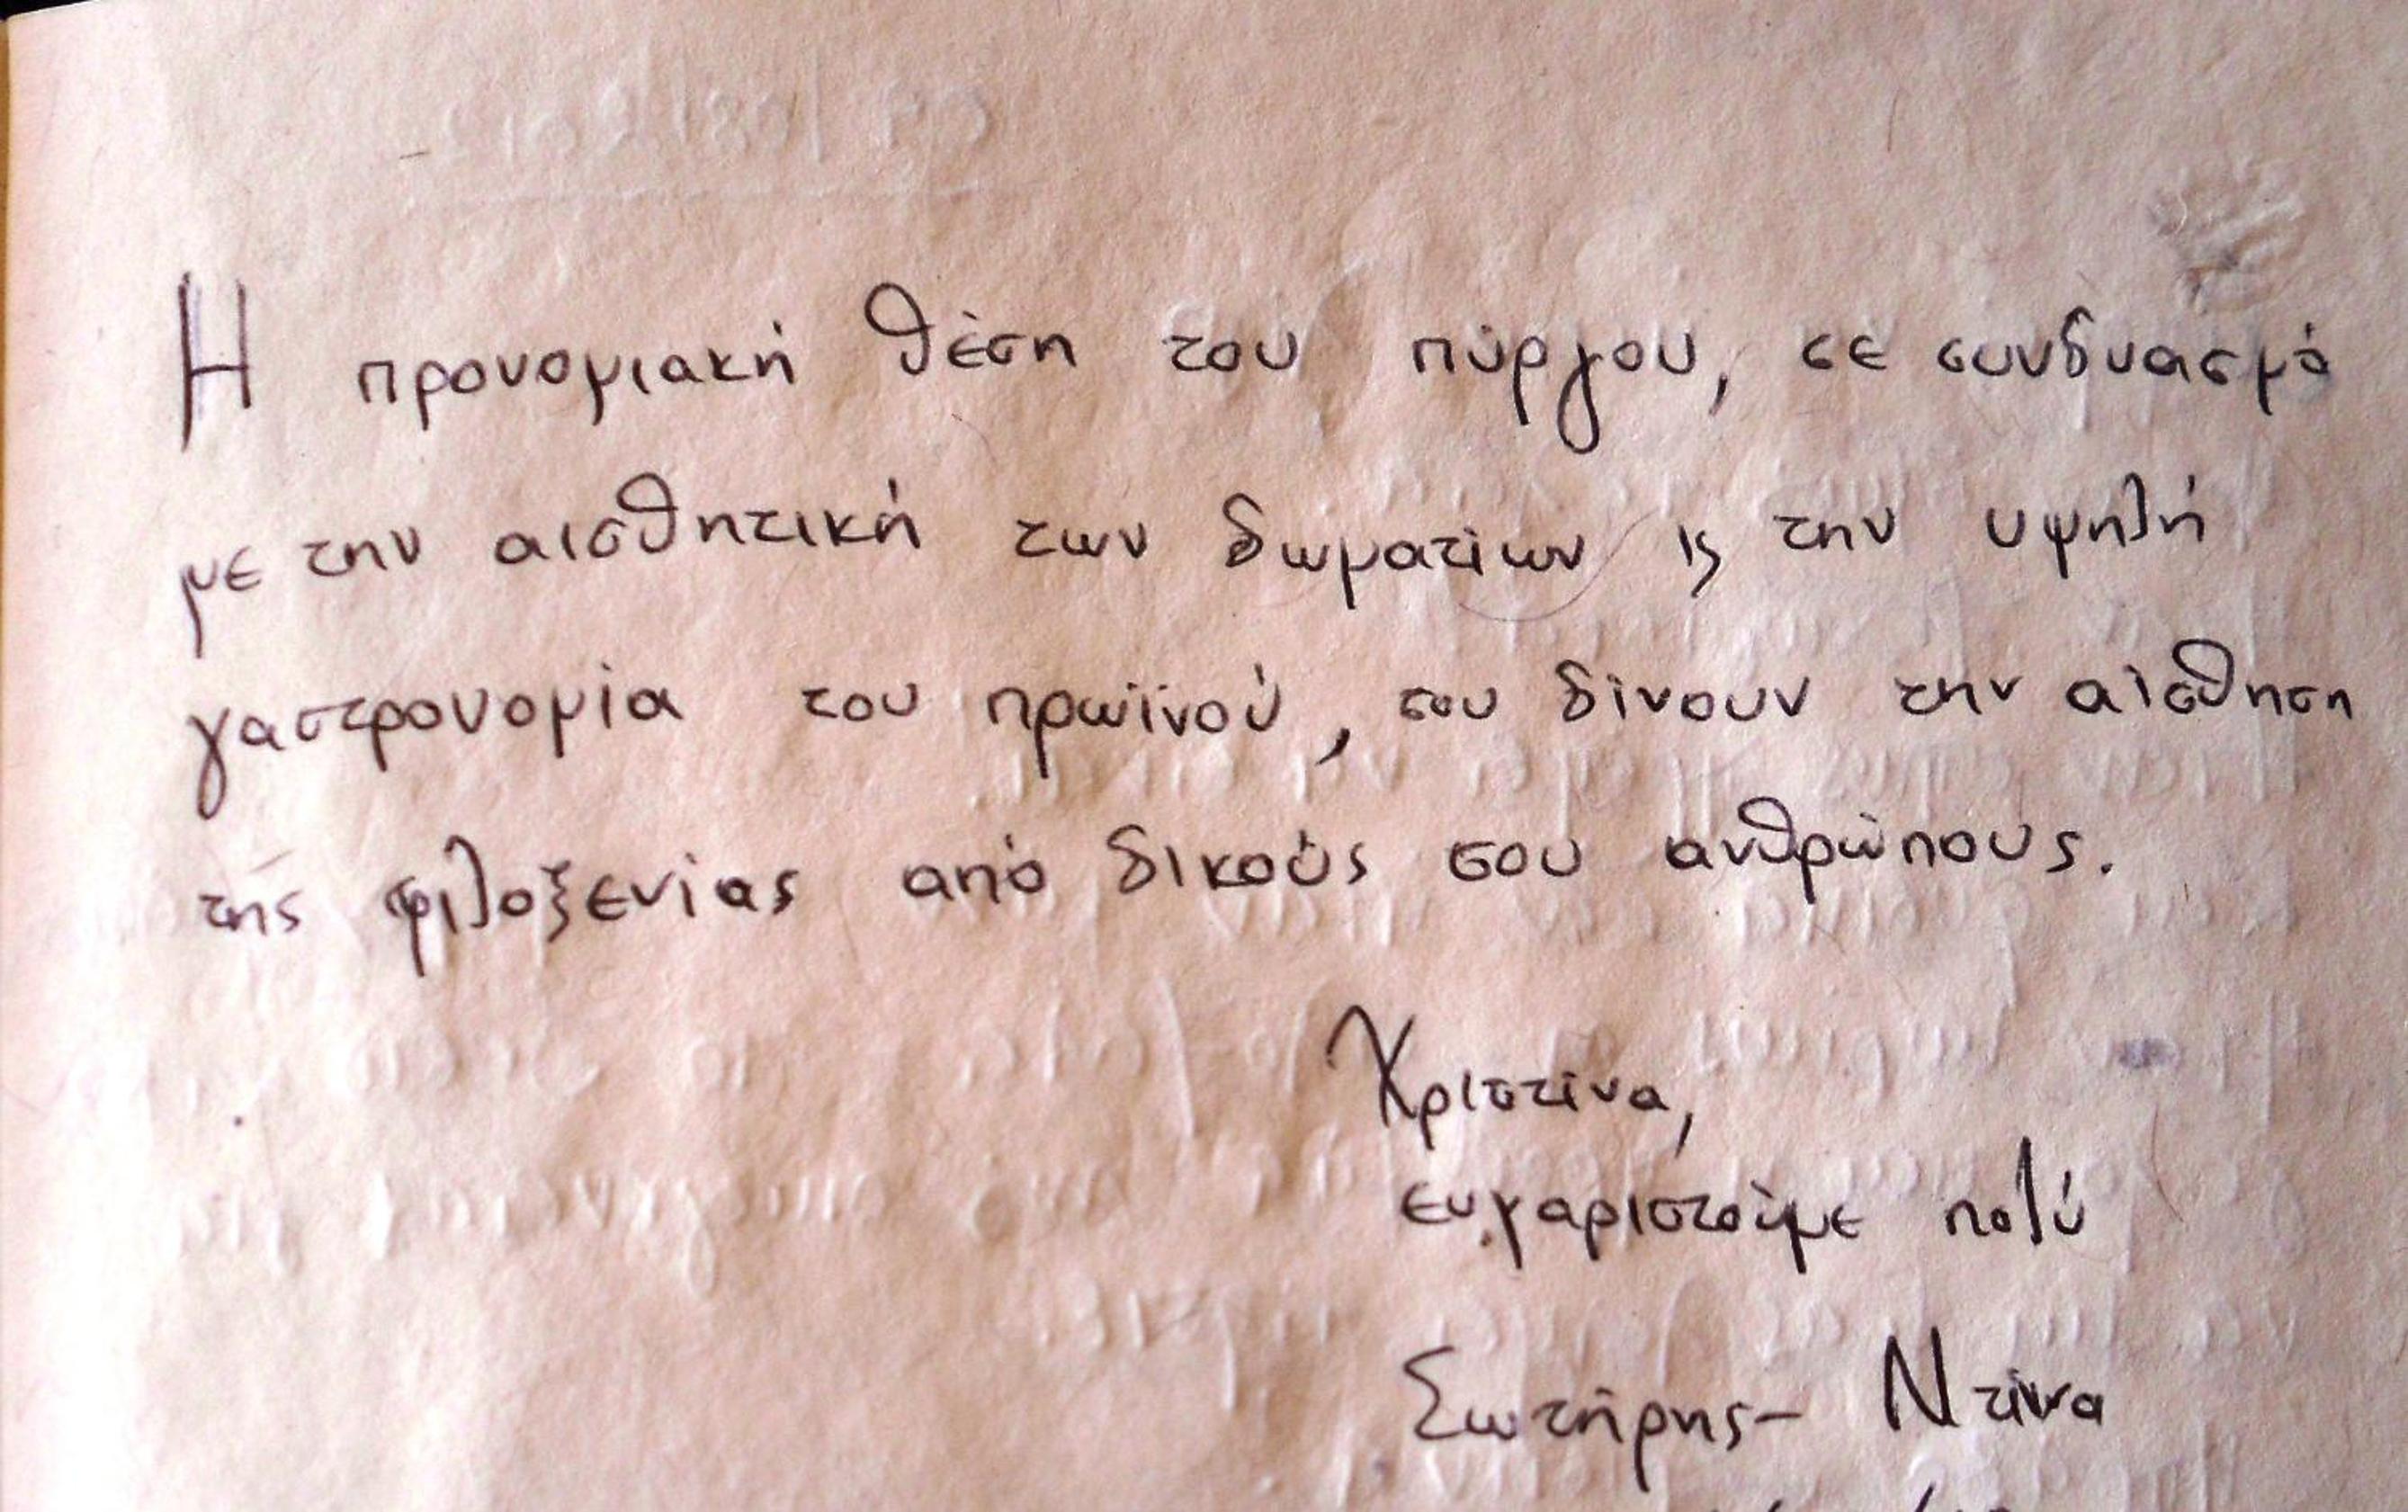 Η προνομιακή θέση του πύργου, σε συνδυασμό
με την αισθητική των δωματίων ϗ την υψηλή
γαστρονομία του πρωϊνού, σου δίνουν την αίσθηση
της φιλοξενίας από δικούς σου ανθρώπους.
Χριστίνα,
ευχαριστούμε πολύ
Σωτήρης - Ντίνα